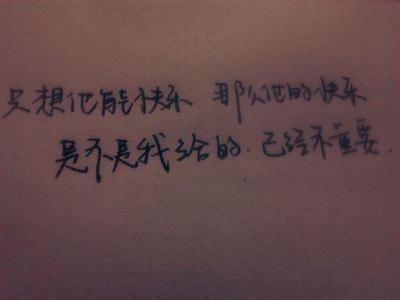 只想他能快乐 那么他的快乐
是不是我给的.已经不重要.